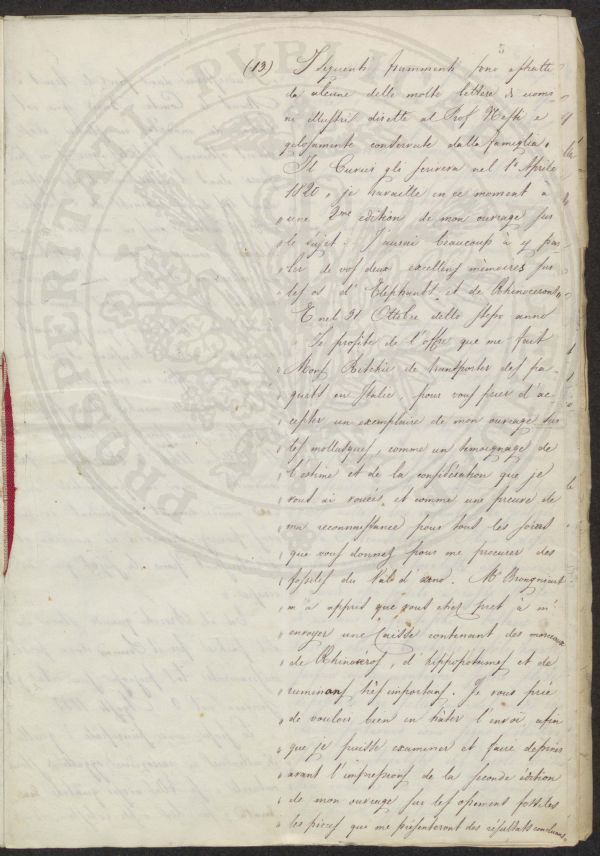 5
(13) I seguenti frammenti sono estratti
da alcune delle molte lettere di uomi-
ni illustri dirette al Prof Nesti e
gelosamente conservate dalla famiglia.
Il Cuvier gli scriveva nel 1° Aprile
1820, je travaille en ce moment a
une 2me edition de mon ouvrage sur
le sujet. J'aurai beaucoup à y par-
ler de vos deux excellens mémoires sur
les os d'Elephants et de Rhinocerons,
E nel 31 Ottobre dello stesso anno
Je profite de l'offre que me fait
Mons Ritchie de transporter des pa-
quets en Italie, pour vous prier d'ac-
cepter un exemplaire de mon ouvrage sur
les mollusques, comme un temoignage de
l'estime et de la considération que je
vous ai vouées et comme une preuve de
ma reconnaissance pour tous les soins
que vous donnez pour me procurer des
fossiles du Val d'arno. Mr Brongniart
m'a appris que vous etiez pret à m'
envoyer une Caisse contenant des morceaux
de Rhinocéros, d'hippopotames et de
ruminans très importans. Je vous prie
de vouloir bien en hâter l'envoi, afin
que je puisse examiner et faire dessiner
avant l'impression de la seconde édition
de mon ouvrage sur les ossement fossiles
les pieces que me présenteront des résultats concluans,
PROSPERITATI PUBLICAE